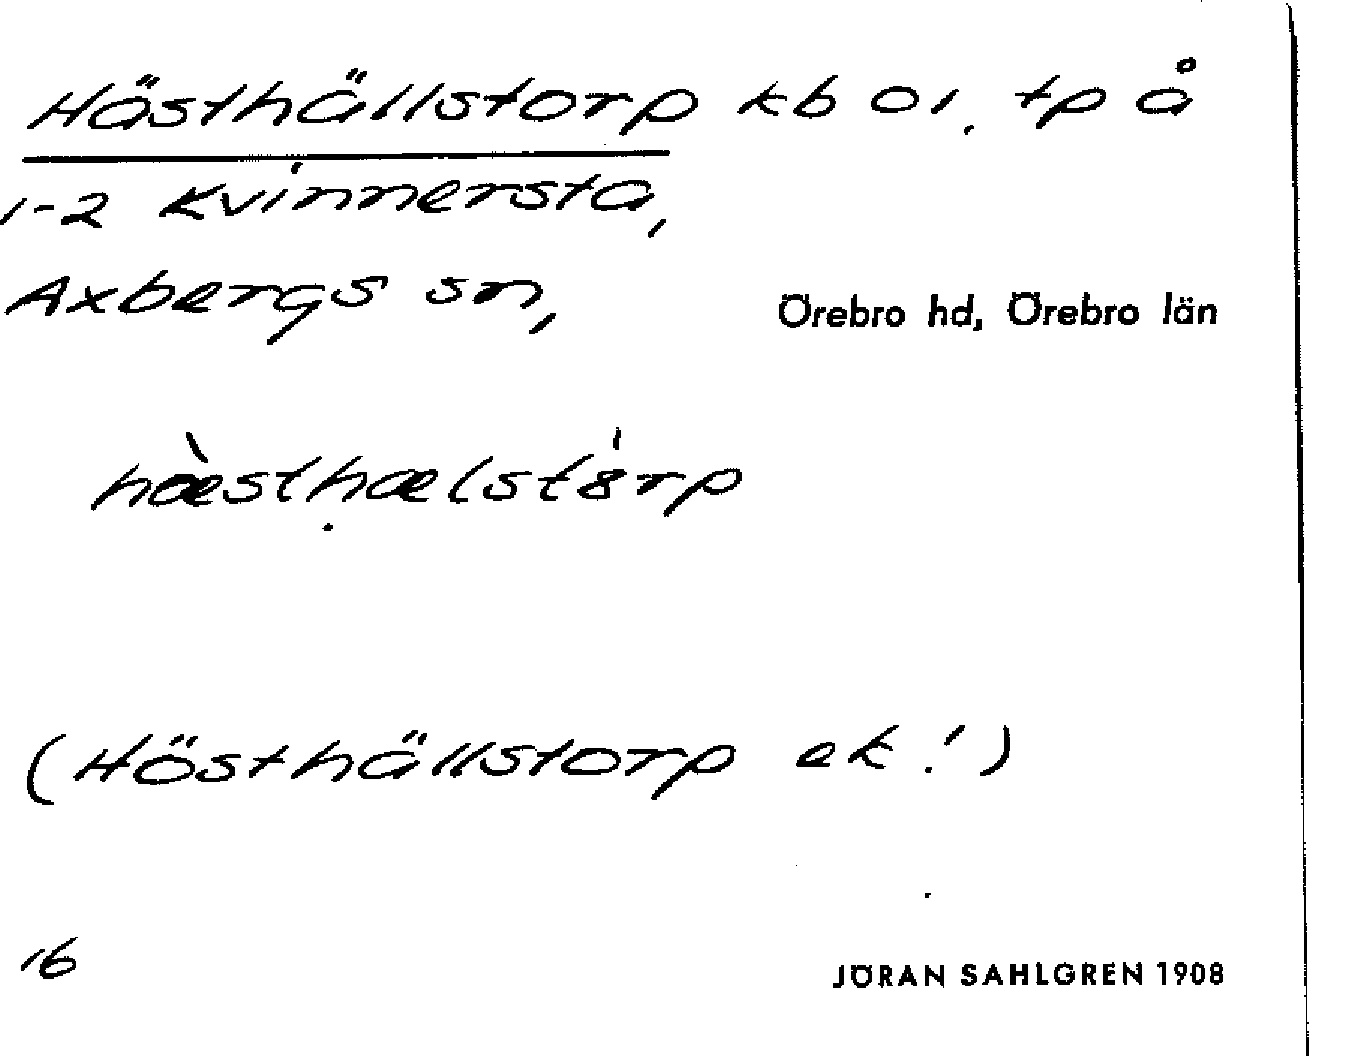 Hästhällstorp kb or. tp å
1-2 Kvinnersta,
Axbergs sn, Örebro hd, Örebro län
hæ̀sthælstórp
(Hösthällstorp ek!)
16
JÖRAN SAHLGREN 1908